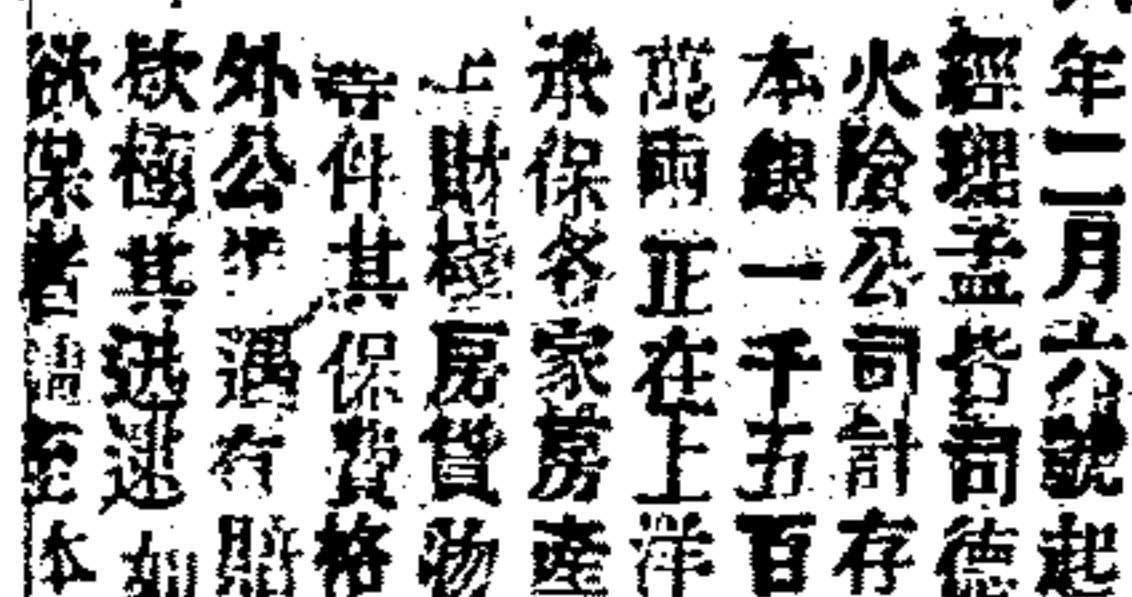 年二月六號起
經理孟皆司德
火險公司計存
本銀一千五百
萬兩正在上洋
承保各家房產
上財極房貨物
等件其保費格
外公平遇有賠
款極其迅速如
欲保者請至本